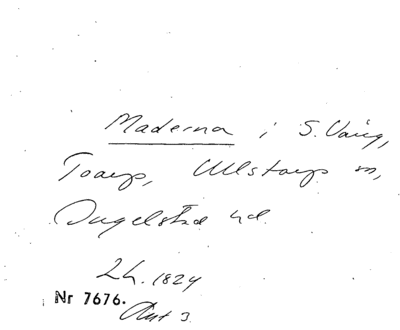 Maderna i S. Vång,
Toarp, Ullstorps sn,
Ingelstad hd.
2h. 1824
Nr 7676.
Avt 3